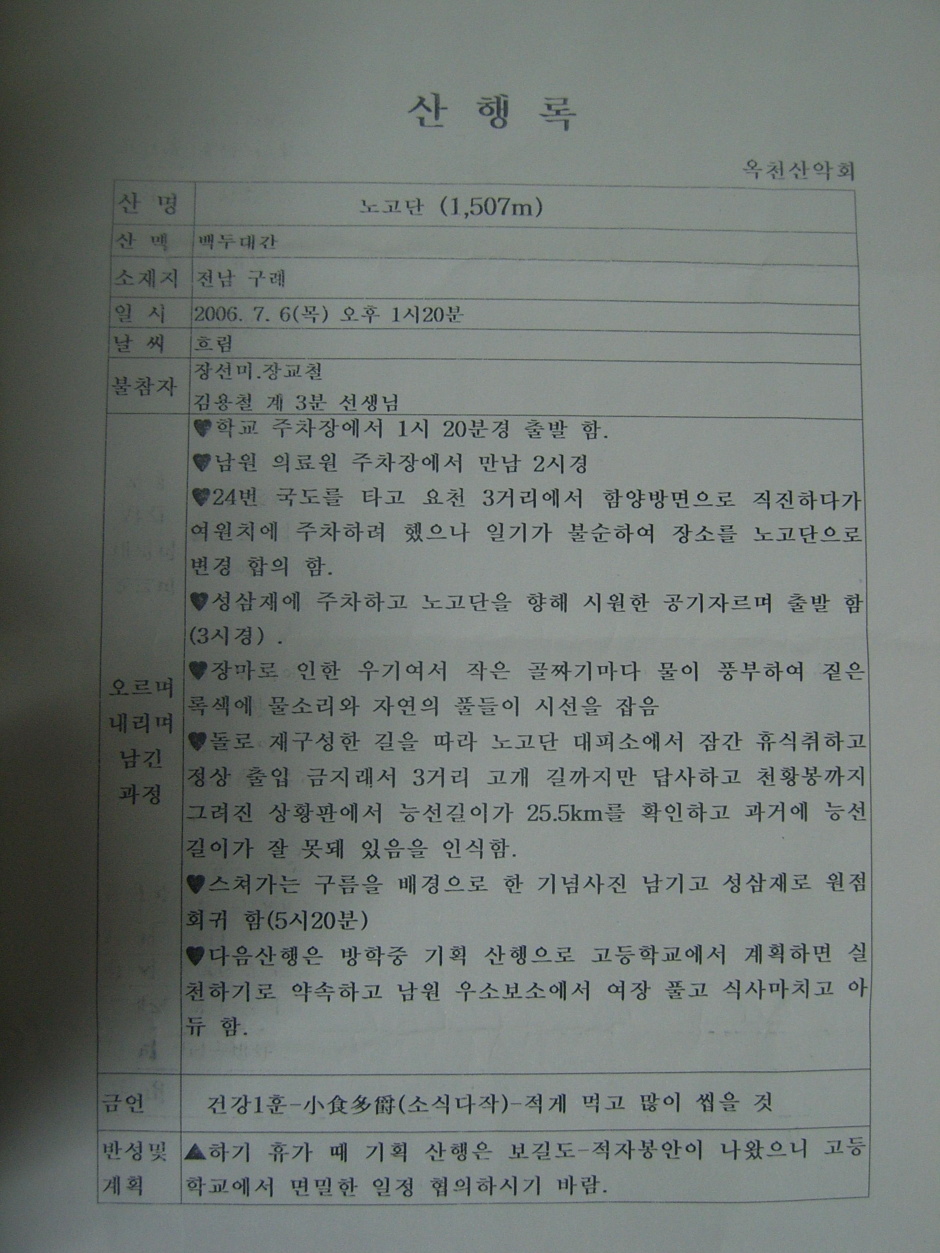 산 행 록
옥천산악회
산 명 노고단 (1,507m)
산 맥 백두대간
소재지 전남 구례
일 시 2006. 7. 6(목) 오후 1시20분
날 씨 흐림
불참자 장선미.장교철
김용철 계 3분 선생님
오르며
내리며
남긴
과정
♥학교 주차장에서 1시 20분경 출발 함.
♥남원 의료원 주차장에서 만남 2시경
♥24번 국도를 타고 요천 3거리에서 함양방면으로 직진하다가
여원치에 주차하려 했으나 일기가 불순하여 장소를 노고단으로
변경 합의 함.
♥성삼재에 주차하고 노고단을 향해 시원한 공기자르며 출발 함
(3시경) .
♥장마로 인한 우기여서 작은 골짜기마다 물이 풍부하여 짙은
록색에 물소리와 자연의 풀들이 시선을 잡음
♥돌로 재구성한 길을 따라 노고단 대피소에서 잠간 휴식취하고
정상 출입 금지래서 3거리 고개 길까지만 답사하고 천황봉까지
그려진 상황판에서 능선길이가 25.5km를 확인하고 과거에 능선
길이가 잘 못돼 있음을 인식함.
♥스쳐가는 구름을 배경으로 한 기념사진 남기고 성삼재로 원점
회귀 함(5시20분)
♥다음산행은 방학중 기획 산행으로 고등학교에서 계획하면 실
천하기로 약속하고 남원 우소보소에서 여장 풀고 식사마치고 아
듀 함.
금언 건강1훈-小食多爵(소식다작)-적게 먹고 많이 씹을 것
반성및
계획
▲하기 휴가 때 기획 산행은 보길도-적자봉안이 나왔으니 고등
학교에서 면밀한 일정 협의하시기 바람.